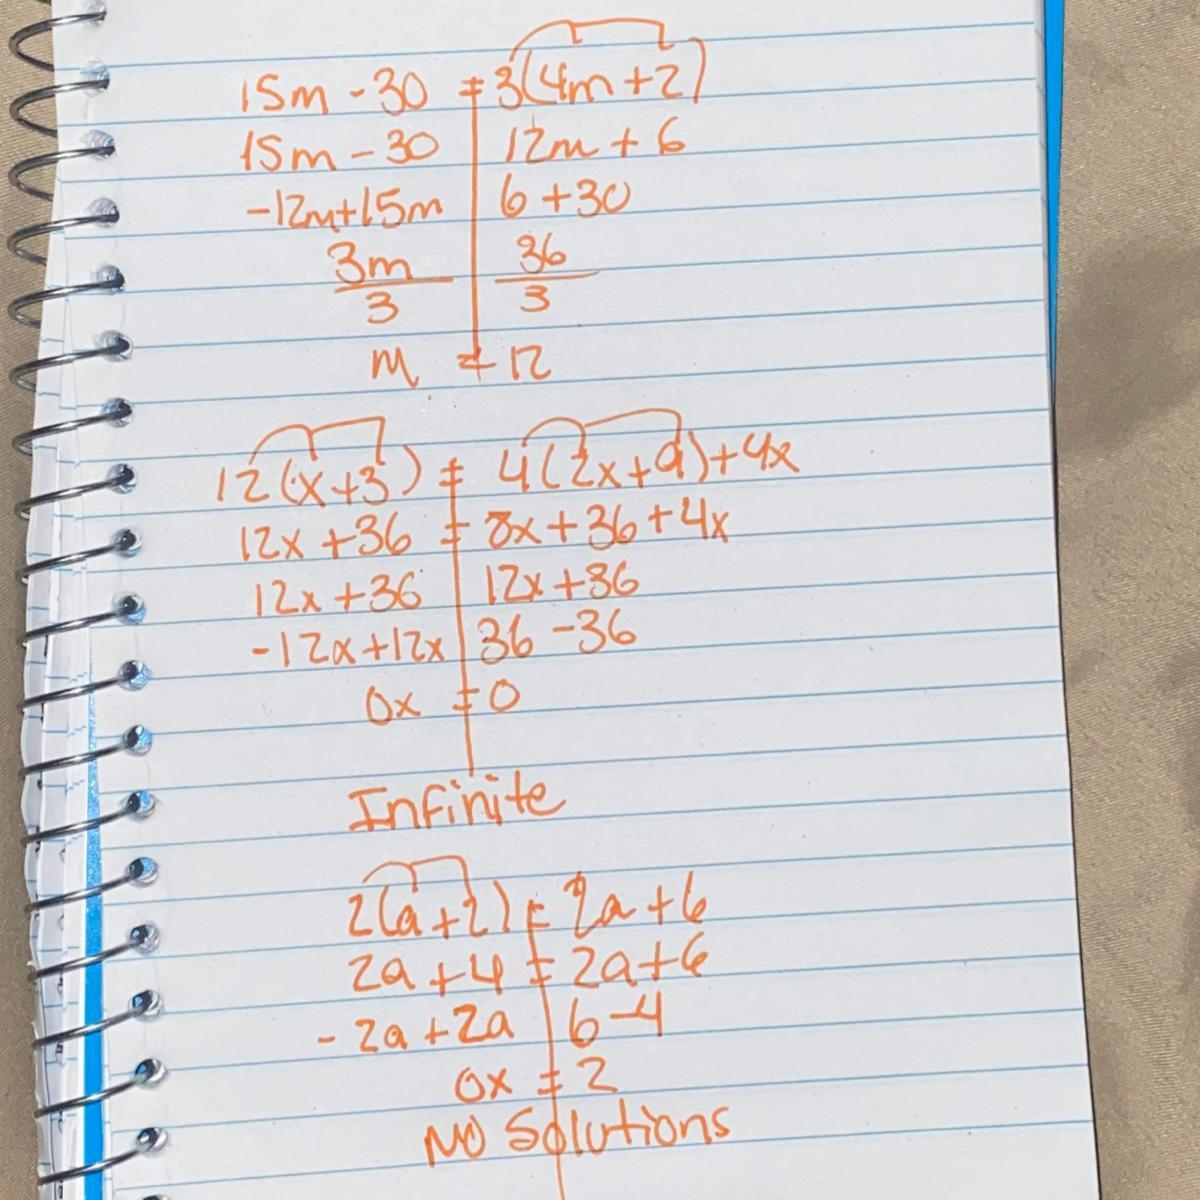 15m - 30 = 3(4m + 2)
15m - 30 12m + 6
-12m+15m 6 + 30
3m 36
3 3
m = 12
12(x+3) = 4(2x+9)+4x
12x + 36 = 8x + 36 + 4x
12x + 36 12x + 36
-12x+12x 36 - 36
0x = 0
Infinite
2(a+2) = 2a + 6
2a + 4 = 2a + 6
- 2a + 2a 6 - 4
0x = 2
NO Solutions